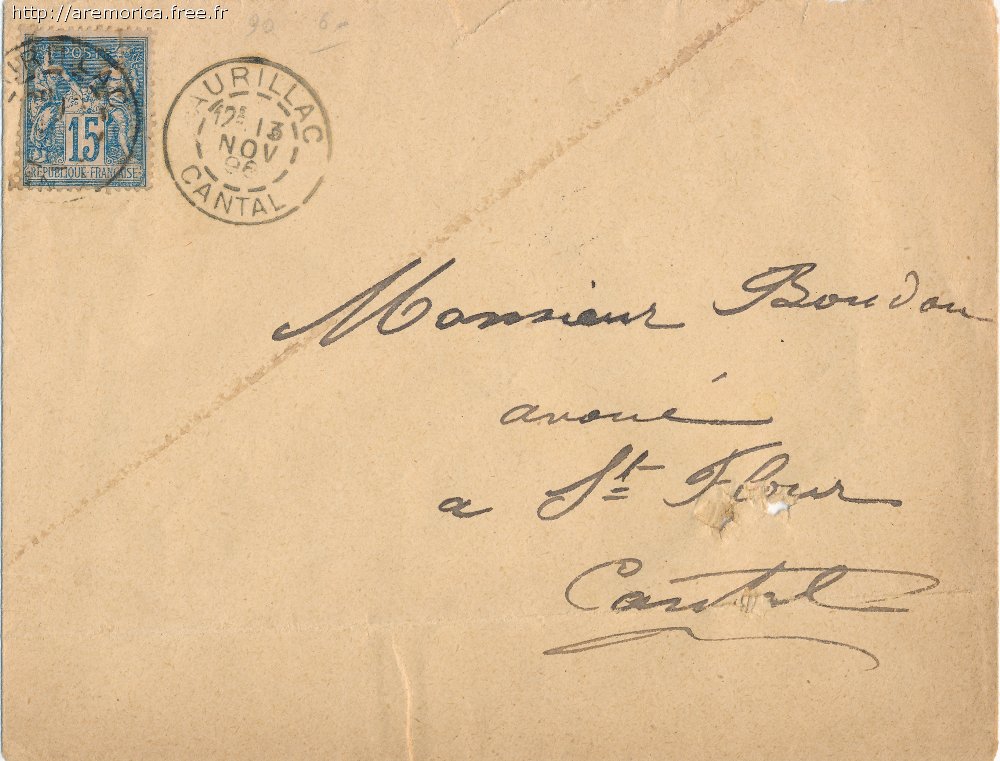 http://aremorica.free.fr
90 6-
POSTE
15
REPUBLIQUE FRANÇAISE
AURILLAC
13
NOV
96
CANTAL
Monsieur Boudon
avoué
a St Flour
Cantal